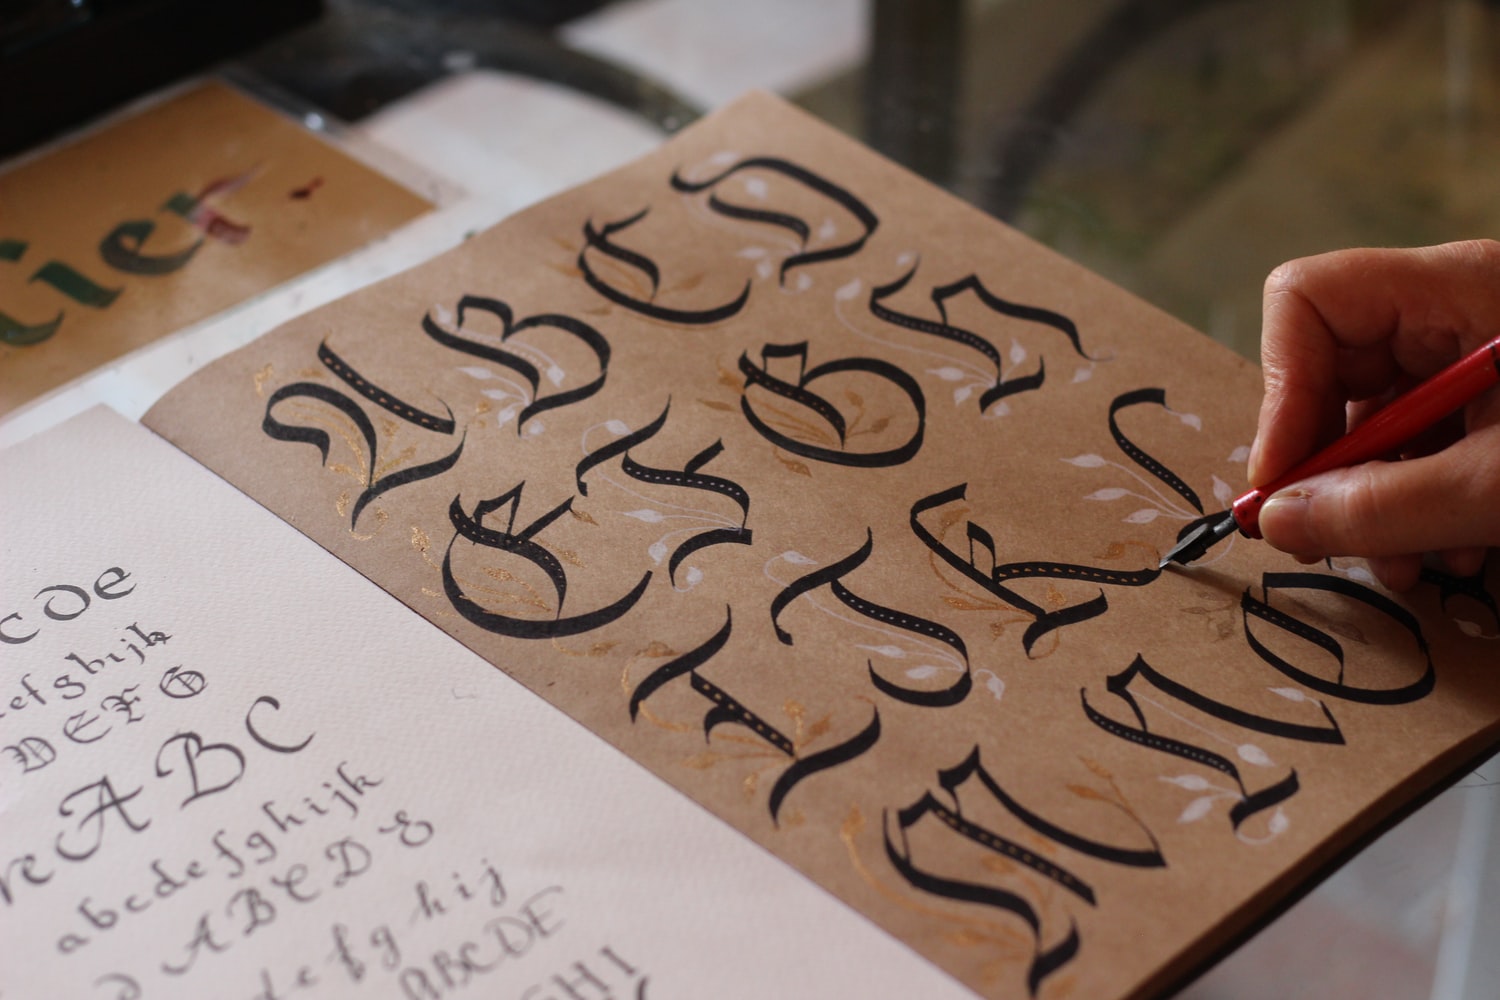 ier.
A B C D
E F G H
I J K L
M N O
c d e
e f g h i j k
D E F G
re A B C
a b c d e f g h i j k
A B C D E
d e f g h i j
A B C D E
G H I